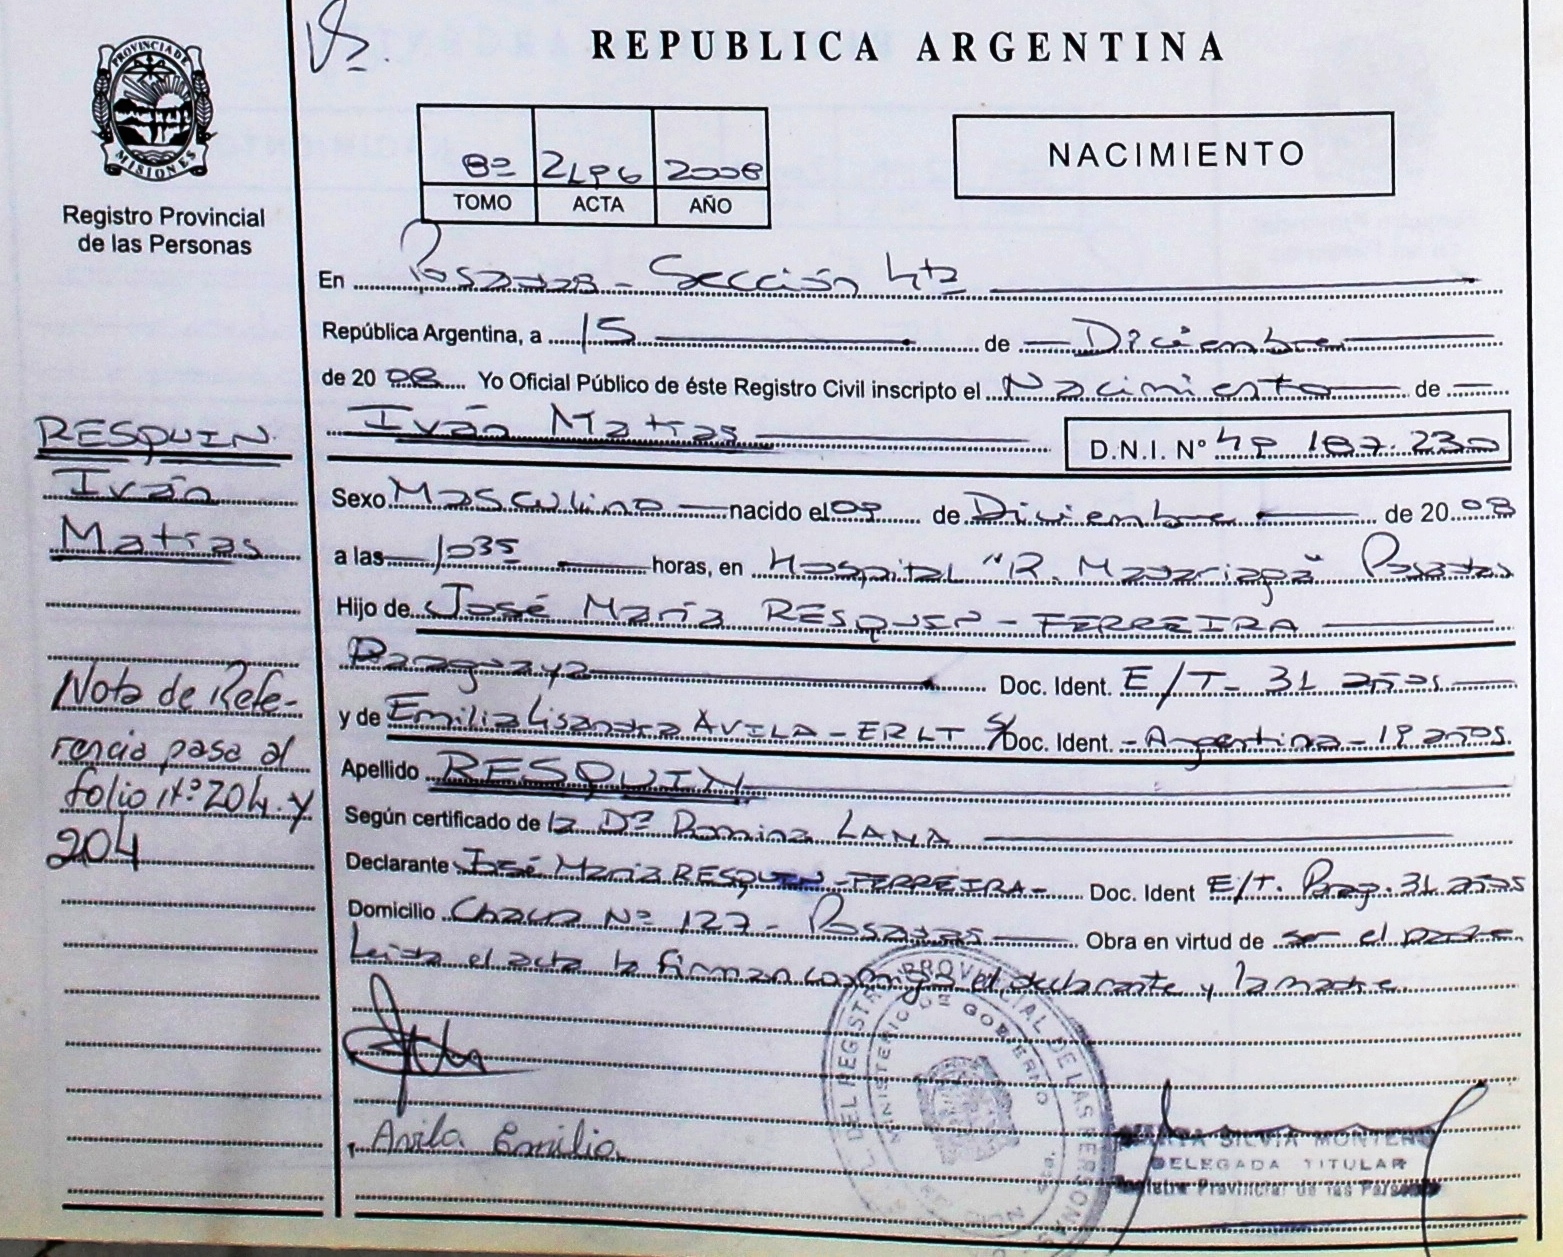 REPUBLICA ARGENTINA
PROVINCIA DE
MISIONES
Registro Provincial
de las Personas
8º 2496 2008
TOMO ACTA AÑO
NACIMIENTO
En Posadas - Sección 4ta
República Argentina, a 15 de Diciembre
de 2008 Yo Oficial Público de éste Registro Civil inscripto el Nacimiento de
Iván Matías D.N.I. Nº 49.187.230
RESQUIN
Iván
Matías
Sexo Masculino nacido el 09 de Diciembre de 2008
a las 1035 horas, en Hospital "R. Madariaga" Posadas
Hijo de José María RESQUIN - FERREIRA
Paraguaya Doc. Ident. E/T - 31 años
y de Emilia Lisandra AVILA - ERLT S/Doc. Ident. - Argentina - 19 años
Apellido RESQUIN
Según certificado de la Dra Romina LANA
Declarante José María RESQUIN - FERREIRA - Doc. Ident E/T. Parag. 31 años
Domicilio Chacra Nº 127 - Posadas Obra en virtud de ser el padre
Leida el acta la firman conmigo el declarante y la madre
Nota de Refe-
rencia pasa al
folio Nº 204 y
204
Avila Emilia
REGISTRO PROVINCIAL DE LAS PERSONAS
MINISTERIO DE GOBIERNO
MARTA SILVIA MONTERO
DELEGADA TITULAR
Registro Provincial de las Personas